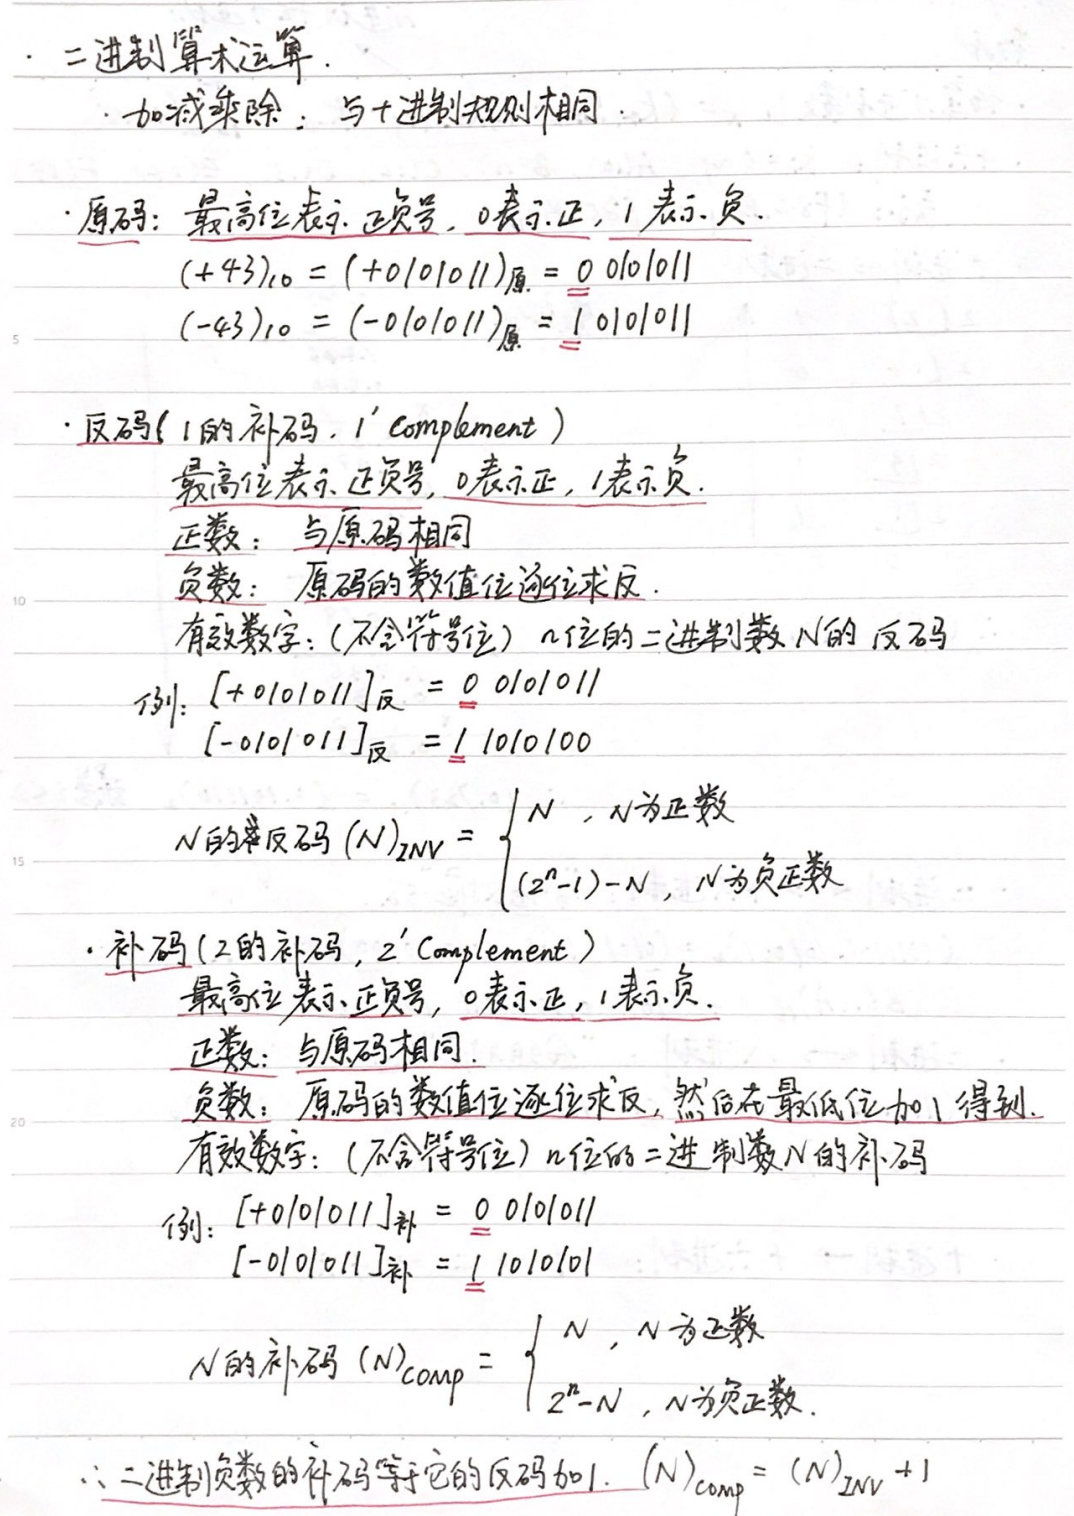 · 二进制算术运算.
· 加减乘除: 与十进制规则相同.
· 原码: 最高位表示正负号, 0表示正, 1表示负.
(+43)₁₀ = (+0101011)原 = 0 0101011
(-43)₁₀ = (-0101011)原 = 1 0101011
5
· 反码(1的补码, 1' Complement)
最高位表示正负号, 0表示正, 1表示负.
正数: 与原码相同
负数: 原码的数值位逐位求反.
10
有效数字: (不含符号位) n位的二进制数N的反码
例: [+0101011]反 = 0 0101011
[-0101011]反 = 1 1010100
N的反码 (N)INV = { N , N为正数
(2ⁿ-1)-N , N为负正数
15
· 补码(2的补码, 2' Complement)
最高位表示正负号, 0表示正, 1表示负.
正数: 与原码相同.
负数: 原码的数值位逐位求反, 然后在最低位加1得到.
20
有效数字: (不含符号位) n位的二进制数N的补码
例: [+0101011]补 = 0 0101011
[-0101011]补 = 1 1010101
N的补码 (N)COMP = { N , N为正数
2ⁿ-N , N为负正数.
∴ 二进制负数的补码等于它的反码加1. (N)comp = (N)INV +1